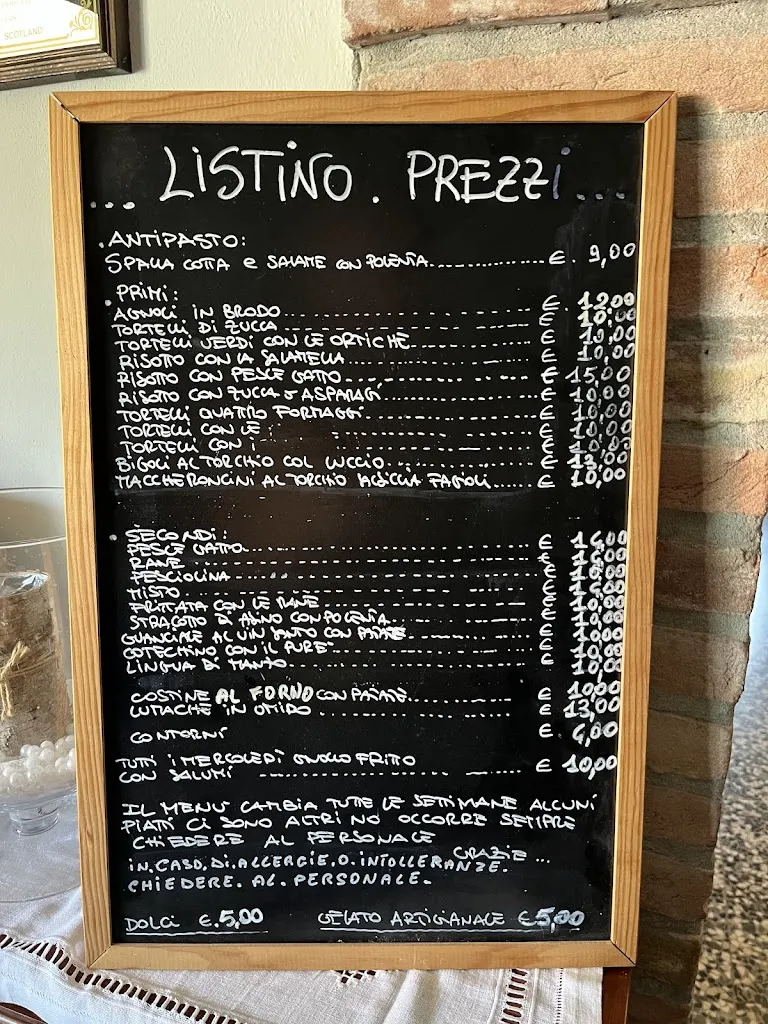 SCOTLAND
... LISTINO . PREZZI ...
. ANTIPASTO:
SPALLA COTTA e SALAME CON POLENTA.................. €. 9,00
. PRIMI:
AGNOLI IN BRODO.................. € 12,00
TORTELLI DI ZUCCA.................. € 10,00
TORTELLI VERDI CON LE ORTICHE.................. € 10,00
RISOTTO CON LA SALAMELLA.................. € 10,00
RISOTTO CON PESCE GATTO.................. € 15,00
RISOTTO CON ZUCCA O ASPARAGI.................. € 10,00
TORTELLI QUATTRO FORMAGGI.................. € 10,00
TORTELLI CON LE : .................. € 10,00
TORTELLI CON I .................. € 10,00
BIGOLI AL TORCHIO COL LUCCIO.................. €
MACCHERONCINI AL TORCHIO FAGIOLI.................. € 10,00
. SECONDI:
PESCE GATTO.................. €
RANE.................. €
PESCIOLINA.................. €
MISTO.................. €
FRITTATA CON LE RANE.................. €
STRACOTTO DI ASINO CON POLENTA.................. €
GUANCIALE AL VIN SANTO CON PATATE.................. €
COTECHINO CON IL PURE'.................. €
LINGUA DI MANZO.................. € 10,00
COSTINE AL FORNO CON PATATE.................. € 10,00
LUMACHE IN UMIDO.................. € 13,00
CONTORNI € 4,00
TUTTI I MERCOLEDÌ GNOCCO FRITTO
CON SALUMI .................. € 10,00
IL MENU CAMBIA TUTTE LE SETTIMANE ALCUNI
PIATTI CI SONO ALTRI NO OCCORRE SEMPRE
CHIEDERE AL PERSONALE
GRAZIE...
IN.CASO.DI.ALLERGIE.O.INTOLLERANZE.
CHIEDERE.AL.PERSONALE.
DOLCI €.5,00 GELATO ARTIGIANALE €5,00